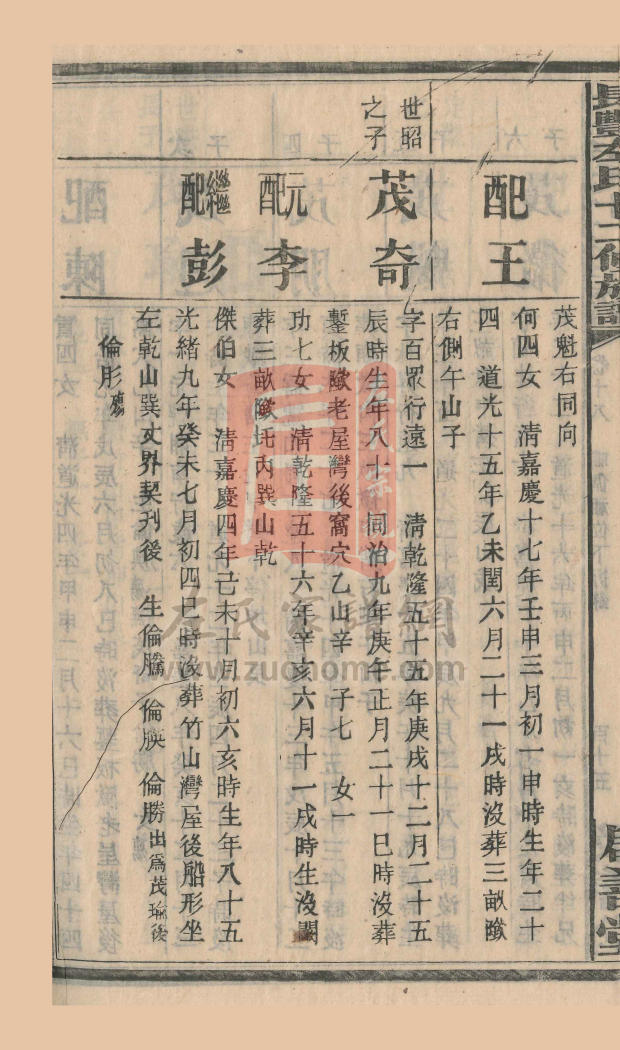 長豐左氏十二修族譜
啟善堂
茂魁右同向
配王
何四女 清嘉慶十七年壬申三月初一申時生年二十
四 道光十五年乙未閏六月二十一戌時沒葬三畝墩
右側午山子
世昭之子
茂奇
字百眾行遠一 清乾隆五十五年庚戌十二月二十五
辰時生年八十一同治九年庚午正月二十一巳時沒葬
鏨板墩老屋灣後窩穴乙山辛 子七 女一
元配李
功七女 清乾隆五十六年辛亥六月十一戌時生沒闕
葬三畝墩圫內巽山乾
繼配彭
傑伯女 清嘉慶四年己未十月初六亥時生年八十五
光緒九年癸未七月初四巳時沒葬竹山灣屋後船形坐
左乾山巽丈界契刋後 生倫騰 倫朠 倫勝出為茂瑜後
倫肜殤
左氏家譜網
www.zuohome.com